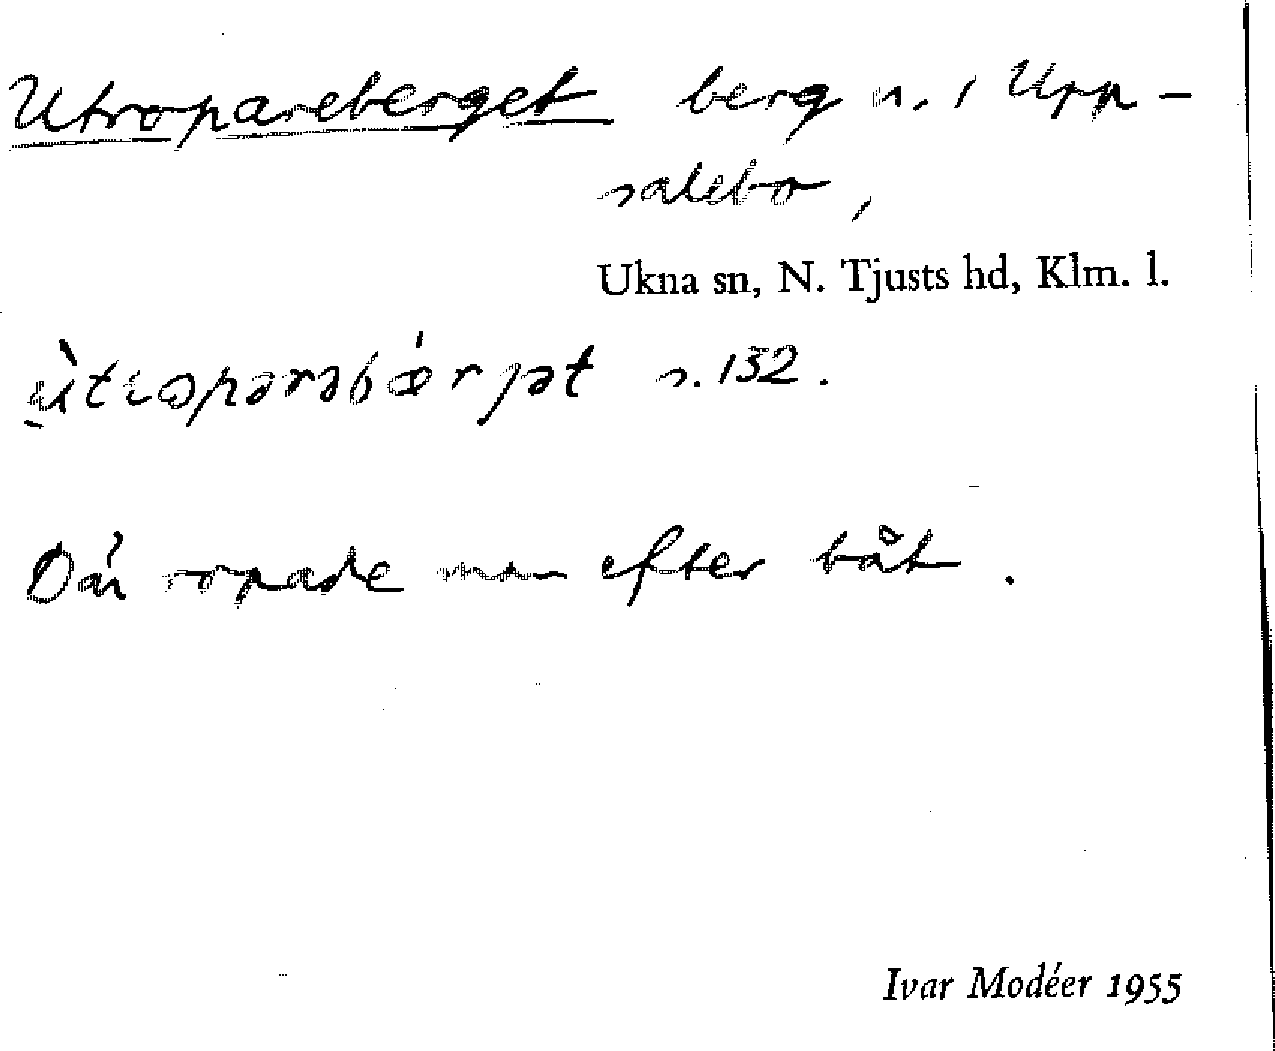 Utropareberget berg n. i Upp-
salebo,
Ukna sn, N. Tjusts hd, Klm. l.
ùtropərəbǽrjət s. 132.
Där ropade man efter båt.
Ivar Modéer 1955